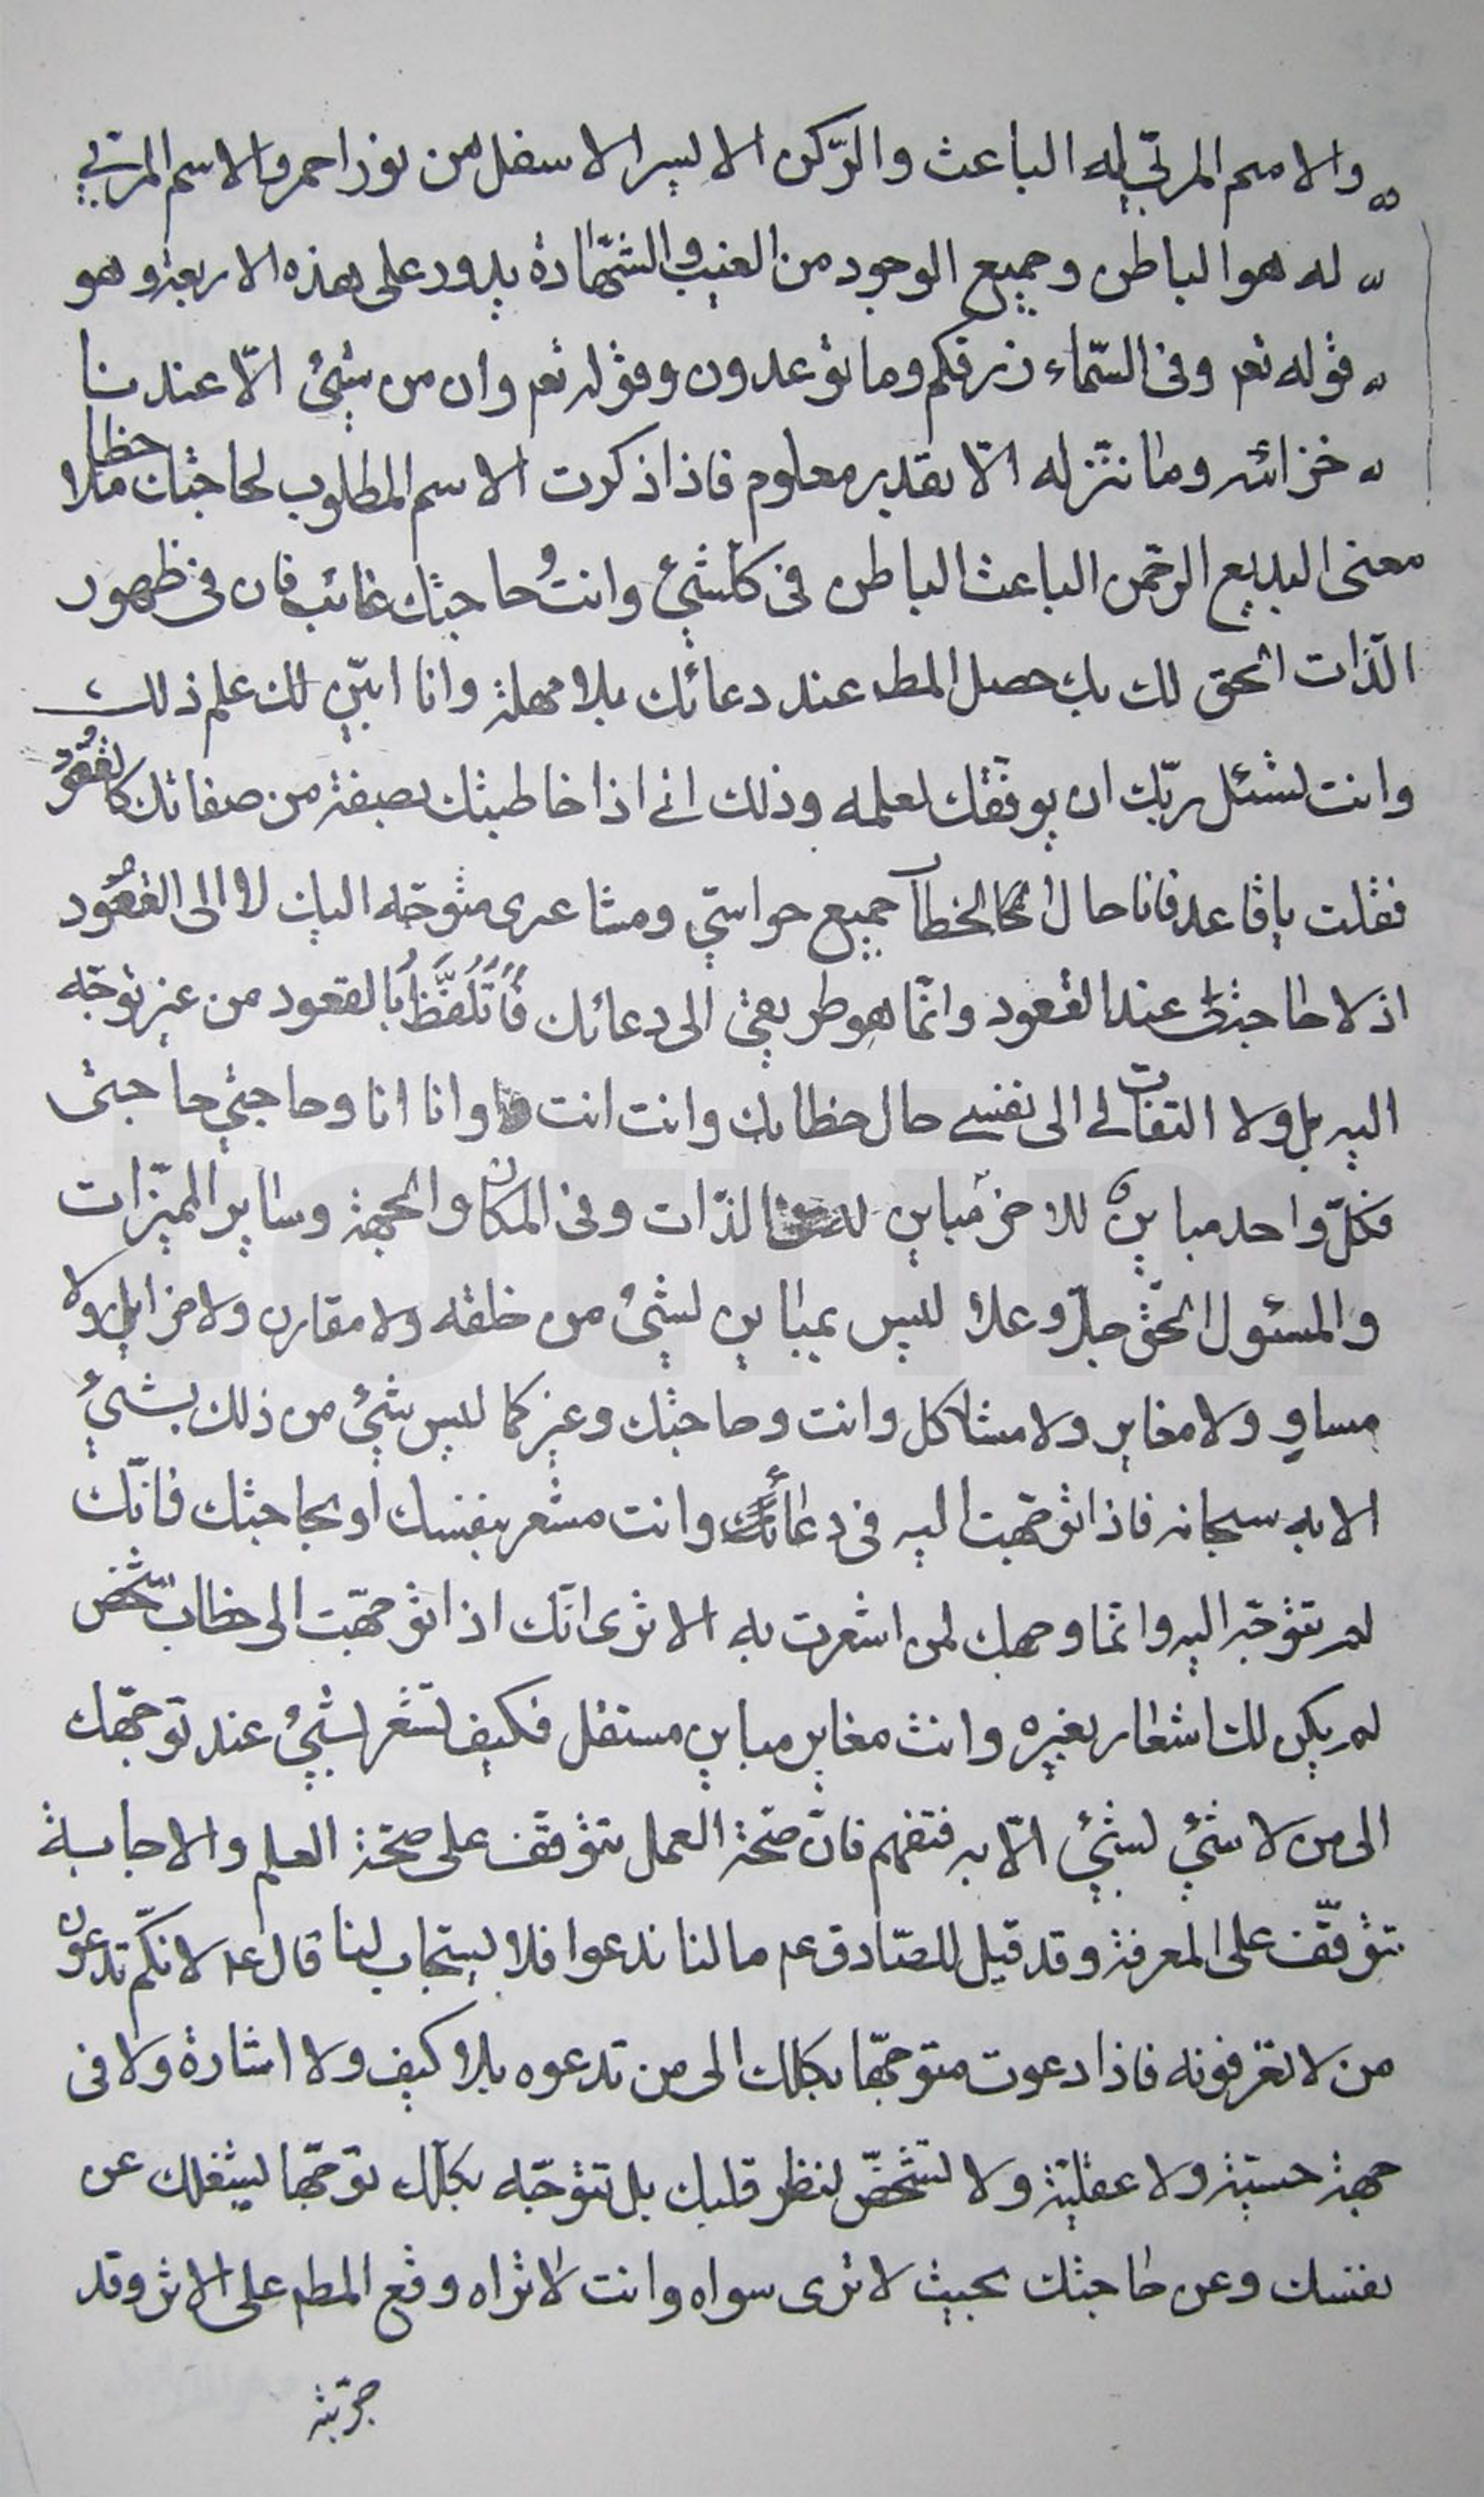 والاسم المربّي له الباعث والرّكن الايسر الاسفل من نور احمر والاسم المربّي
له هو الباطن وجميع الوجود من الغيب والشّهادة يدور على هذه الاربعة وهو
قوله تعم وفى السّماء رزقكم وما توعدون وقوله تعم وان من شئ الّا عندنا
خزائنه وما ننزّله الّا بقدر معلوم فاذا ذكرت الاسم المطلوب لحاجتك ملاحظا
معنى البديع الرحمن الباعث الباطن فى كلّشئ وانت وحاجتك غائبان فى ظهور
الذّات الحق لك بك حصل المط عند دعائك بلا مهلة وانا ابيّن لك علم ذلك
وانت تسئل ربّك ان يوفّقك لعلمه وذلك انى اذا خاطبتك بصفة من صفاتك كالقعود
فقلت يا قاعد فانا حال الخطاب جميع حواسّي ومشاعرى متوجّه اليك لا الى القعود
اذ لا حاجة لى عند القعود وانّما هو طريقى الى دعائك فاتلفّظ بالقعود من غير توجّه
اليه بل ولا التفات لى الى نفسى حال خطابك وانت انت وانا انا وحاجتي حاجتى
فكلّ واحد مباين للاخر مباين الذّات وفى المكان والجهة وساير المميّزات
والمسئول الحقّ جلّ وعلا ليس بمباين لشئ من خلقه ولا مقارن ولا مزايل ولا
مساوٍ ولا مغاير ولا مشاكل وانت وحاجتك وغيركما ليس شئ من ذلك بشئ
الا به سبحانه فاذا توجّهت اليه فى دعائك وانت مشعر بنفسك او بحاجتك فانّك
لم تتوجّه اليه وانّما وجهك لمن اشعرت به الا ترى انّك اذا توجّهت الى خطاب شخص
لم يكن لك اشعار بغيره وانت مغاير مباين مستقل فكيف تشعر بشئ عند توجّهك
الى من لا شئ لشئ الّا به فتفهم فانّ صحّة العمل يتوقّف على صحّة العلم والاجابة
تتوقّف على المعرفة وقد قيل للصّادق عم ما لنا ندعوا فلا يستجاب لنا قال عم لانّكم تدعون
من لا تعرفونه فاذا دعوت متوجّها بكلك الى من تدعوه بلا كيف ولا اشارة ولا فى
جهة حسيّة ولا عقليّة ولا تشخّص لنظر قلبك بل تتوجّه بكلّك توجّها يشغلك عن
نفسك وعن حاجتك بحيث لا ترى سواه وانت لا تراه وقع المطم على الاثر وقد
جرّبته